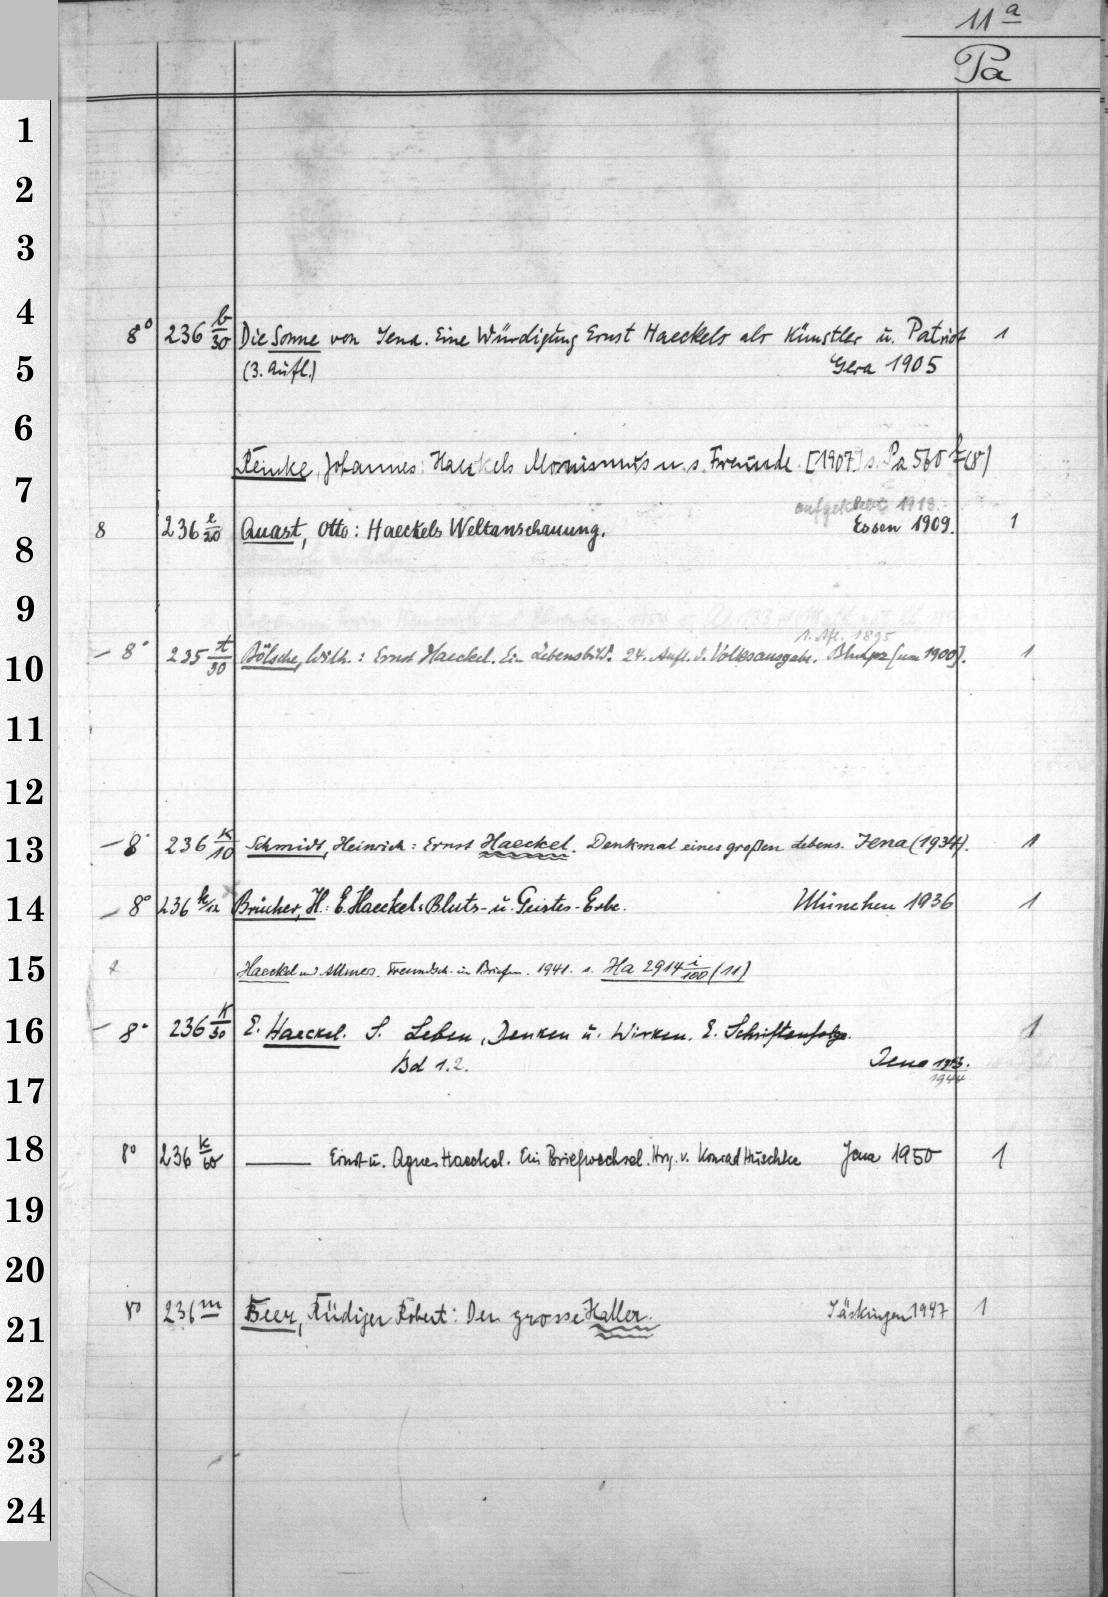 11 a
Pa
1
2
3
4
8° 236 b/30 Die Sonne von Jena. Eine Würdigung Ernst Haeckels als Künstler u. Patriot 1
5 (3. Aufl.) Gera 1905
6
Reinke, Johannes: Haeckels Monismus u. s. Freunde. [1907] s. Pa 560 f (8)
7
aufgeklebt 1913.
8 236 e/20 Quast, Otto: Haeckels Weltanschauung. Essen 1909. 1
8
9
1. Afl. 1895
– 8° 235 t/30 Bölsche, Wilh.: Ernst Haeckel. Ein Lebensbild. 24. Aufl. d. Volksausgabe. [um 1900]. 1
10
11
12
13 – 8° 236 k/10 Schmidt, Heinrich: Ernst Haeckel. Denkmal eines großen Lebens. Jena (1934). 1
14 – 8° 236 k/12 Brücher, H.: E. Haeckels Bluts- u. Geistes-Erbe. München 1936 1
15 Haeckel u. Allmers. Freundsch. in Briefen. 1941. s. Ha 2914 i/100 (11)
16 – 8° 236 k/30 E. Haeckel. S. Leben, Denken u. Wirken. E. Schriftenfolge. 1
Bd 1.2. Jena 1943.
1944
17
18 8° 236 k/60 —— Ernst u. Agnes Haeckel. Ein Briefwechsel. Hrg. v. Konrad Huschke Jena 1950 1
19
20
21 8° 236 m Beer, Rüdiger Robert: Der grosse Haller. Säckingen 1947 1
22
23
24